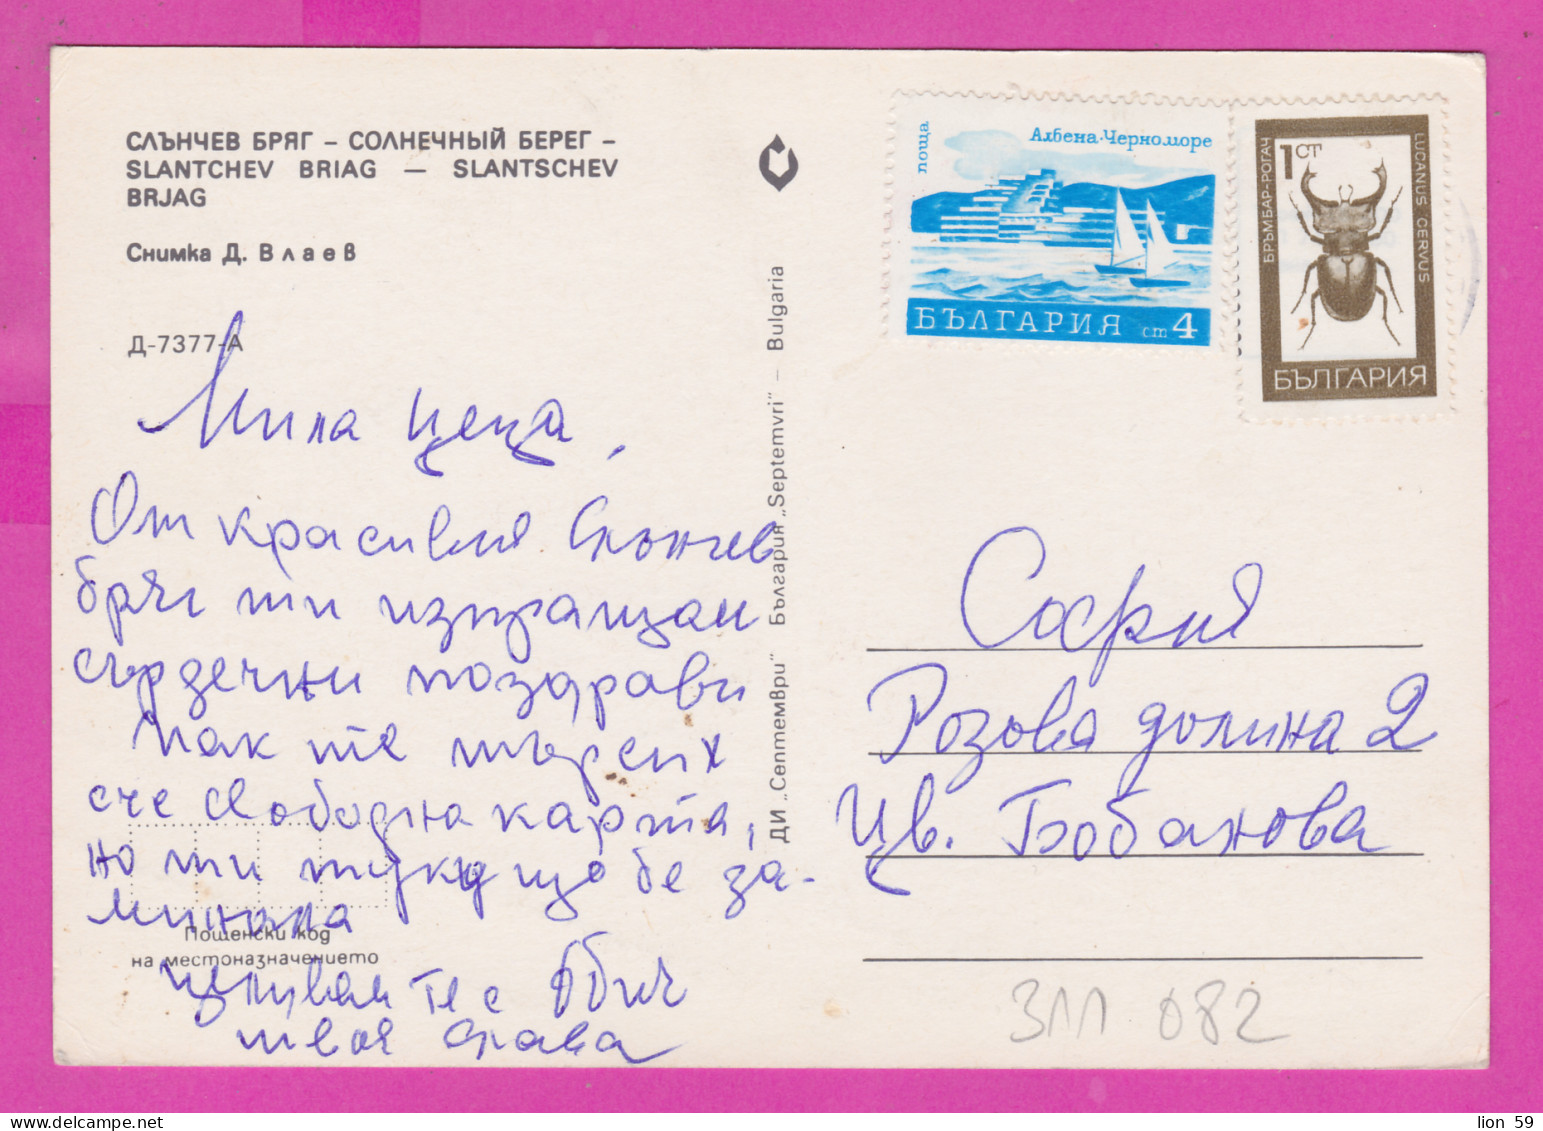 СЛЪНЧЕВ БРЯГ – СОЛНЕЧНЫЙ БЕРЕГ –
SLANTCHEV BRIAG — SLANTSCHEV
BRJAG
Снимка Д. Влаев
Д-7377-А
Мила Цеца,
От красивия Слънчев
бряг ти изпращам
сърдечни поздрави
Пак те търсих
със свободна карта,
но ти тук що бе за-
минала
Целувам те с обич
твоя Слава
Пощенски код
на местоназначението
ДИ „Септември" България „Septemvri" – Bulgaria
поща
Албена·Черноморе
БЪЛГАРИЯ ст 4
1 СТ
БРЪМБАР-РОГАЧ
LUCANUS CERVUS
БЪЛГАРИЯ
София
Розова долина 2
Цв. Бобанова
311 082
lion 59